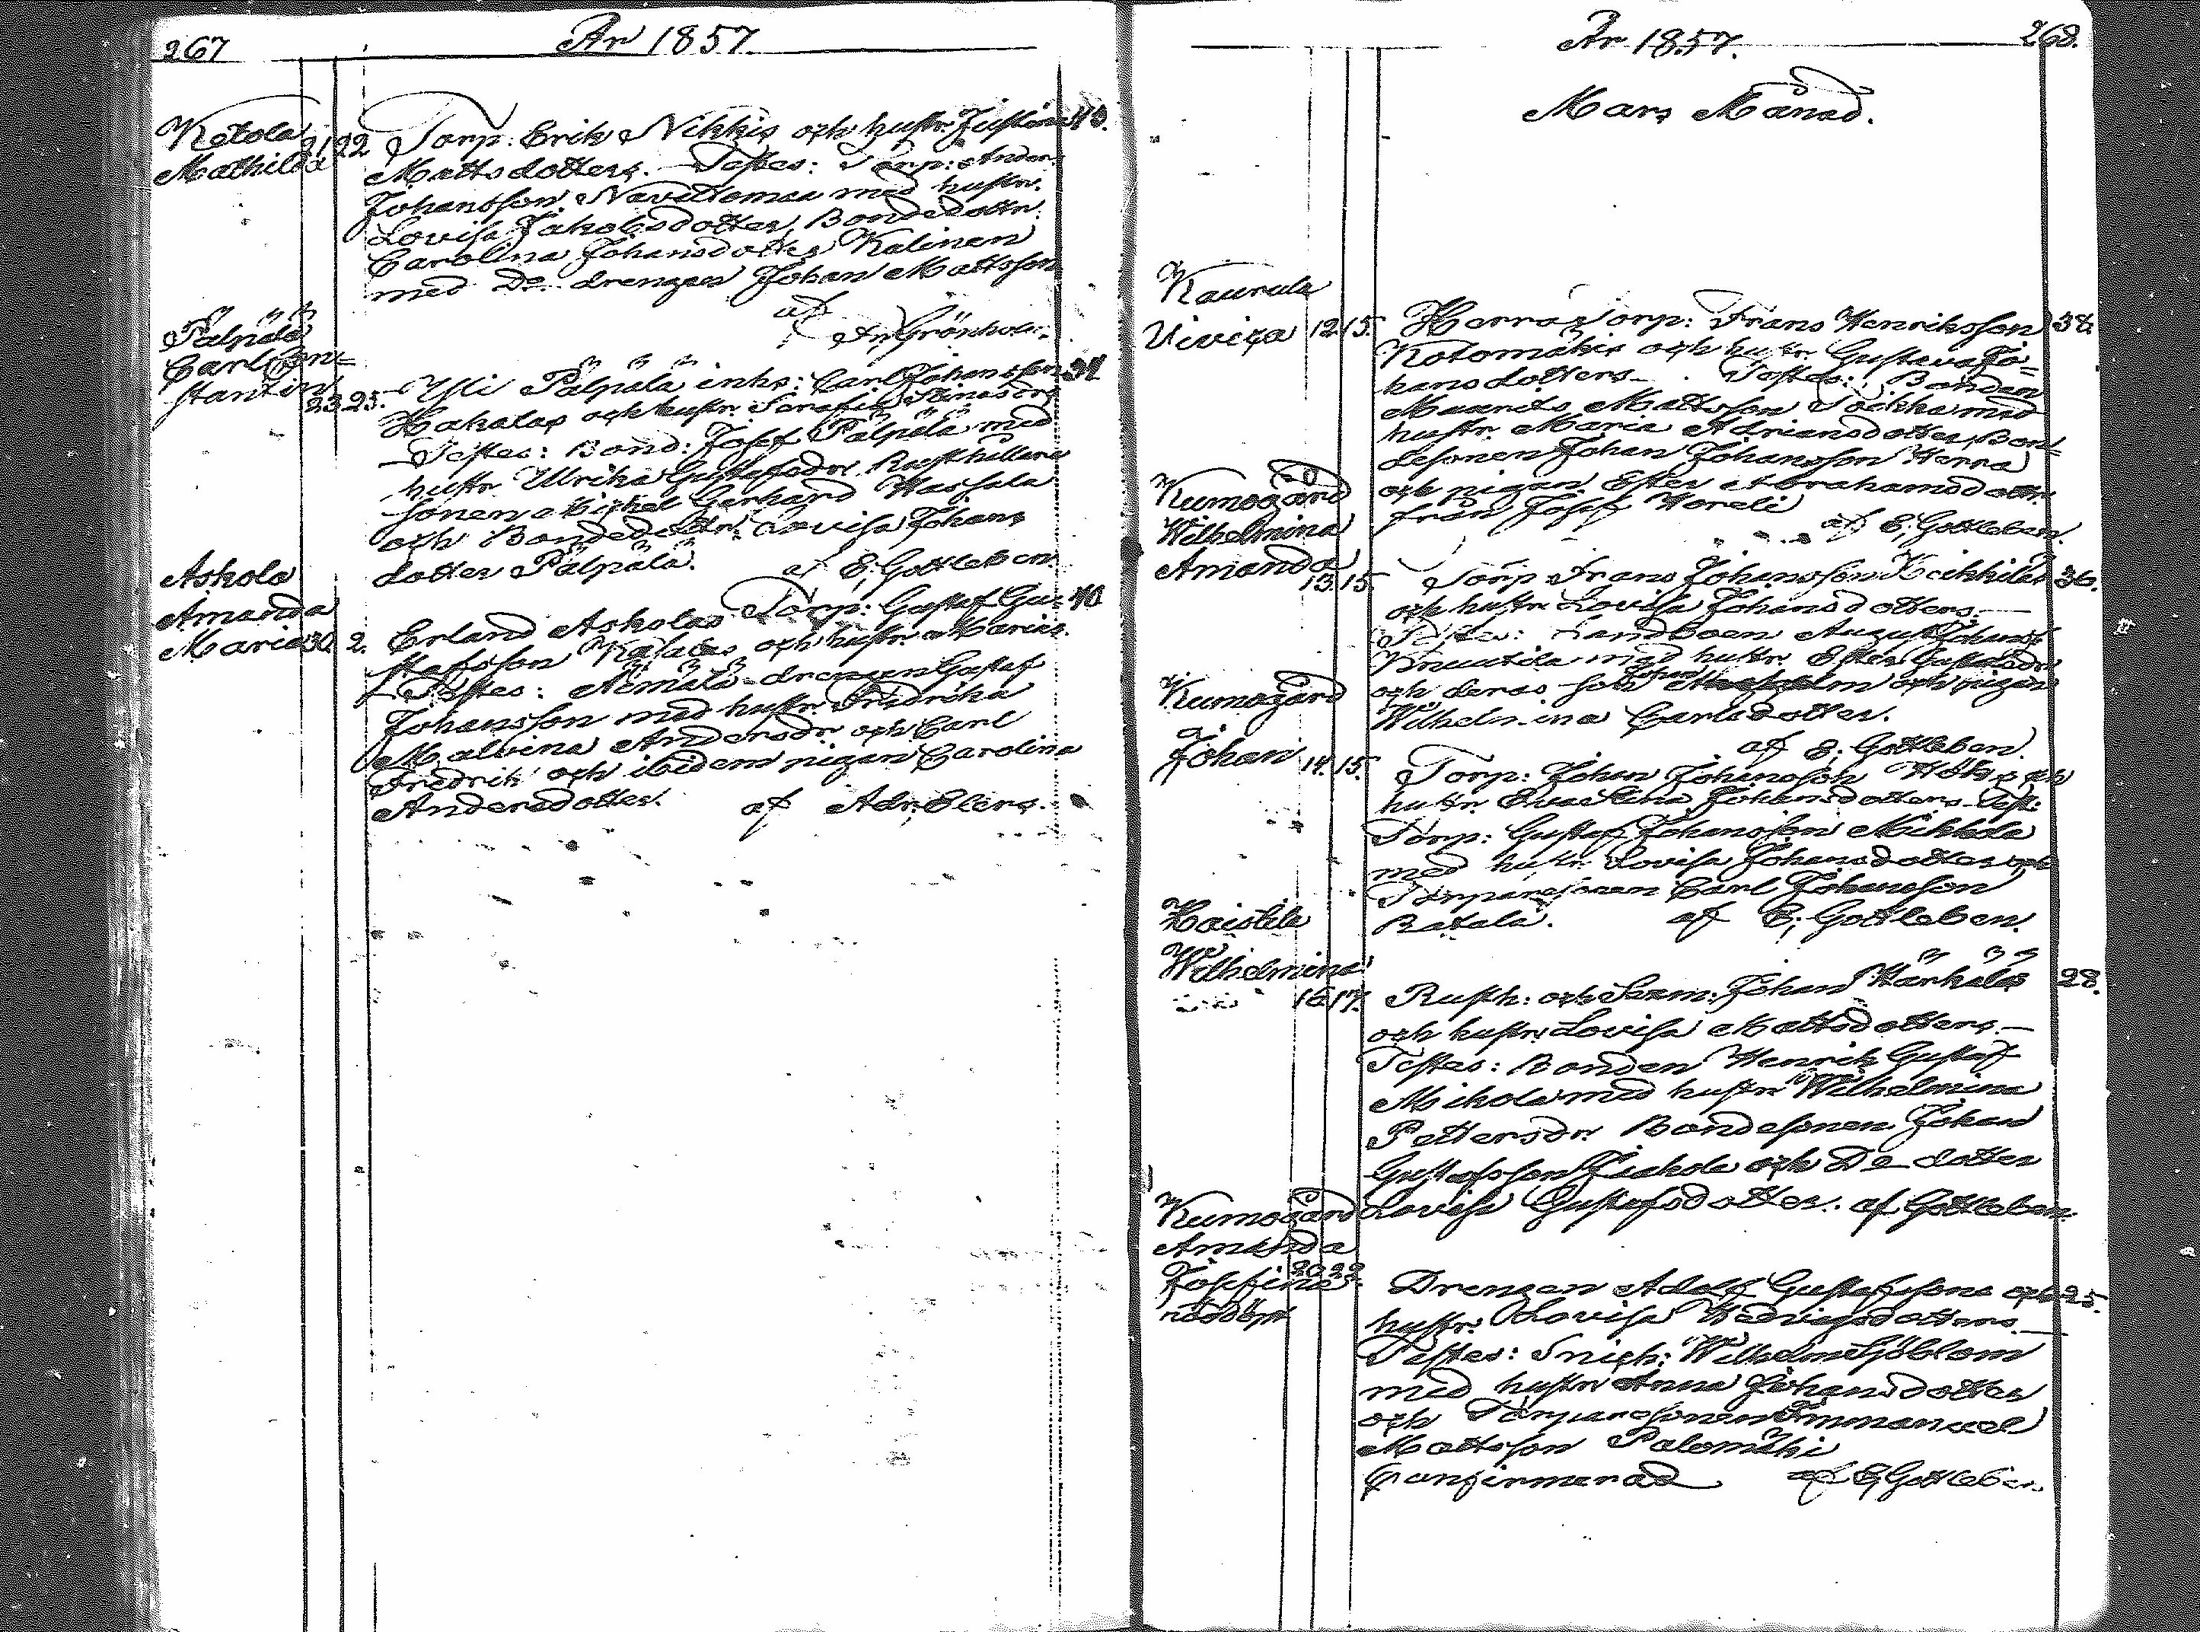 267
År 1857.
Ketola
Mathilda 21 22 Torp: Erik Nikkis och hustr. Justina 43.
Mattsdotters. Testes: Torp: Anders
Johansson Navettomaa med hustr.
Lovisa Jakobsdotter, Bondedottr.
Carolina Johansdotter Kalinen
med Do drengen Johan Mattsson
af
Ar Grönholm.
Pälpälä
Carl Con=
stantin 23. 25. Yli Pälpälä inhs: Carl Johansson 34
Hakalas och hustr. Serafia Stinasdrs
Testes: Bond: Josef Pälpälä med
hustr. Ulrika Gustafsdr. Rusthållare
sonen Michel Gerhard Wassala
och Bondedottr. Lovisa Johans
dotter Pälpälä. af E; Gottleben.
Askola
Amanda
Maria 30. 2. Erland Askolas Torp: Gustaf Gu= 40
stafsson och hustr. Marias.
Testes: drengen Gustaf
Johansson med hustr. Fredrika
Malvina Andersdr och Carl
Fredrik och ibidem pigan Carolina
Andersdotter. af Adr. Elers.
År 1857.
268.
Mars Månad.
Kaurula
Viviga 12. 15. Herra Torp: Frans Henriksson 38.
Kotomäkis och hustr. Gustava Jo=
hansdotters. Testes: Bonden
Maurits Mattsson Sockka med
hustr. Maria Adriansdotter, Bon=
desonen Johan Johansson Herra
och pigan Ester Abrahamsdottr.
från Josef Horeli
af E; Gottleben.
Kumogård
Wilhelmina
Amanda
13. 15. Torp Frans Johansson Heikkiläs 36.
och hustr. Lovisa Johansdotters.
Testes: Landboen August Johanss.
Knuutila med hustr. Ester Gustafsdr
och deras son och pigan
Wilhelmina Carlsdotter.
af E; Gottleben.
Kumogård
Johan 14. 15. Torp: Johan Johansson och
hustr. Eva Stina Johansdotters. Test:
Torp: Gustaf Johansson Mikkola
med hustr. Lovisa Johansdotter och
Torparesonen Carl Johansson
Ratala. af E; Gottleben.
Haistila
Wilhelmina
16 17. Rusth: och Skem: Johan Härkäläs 28.
och hustr. Lovisa Mattsdotters.
Testes: Bonden Henrik Gustaf
Mikola med hustr. Wilhelmina
Pettersdr. Bondesonen Johan
Gustafsson och Do dotter
Lovisa Gustafsdotter. af Gottleben.
Kumogård
Amanda
Josefina 20. 22. Drengen Adolf Gustafssons och 25.
nöddöpt hustr. Lovisa Hedvigsdotters.
Testes: Snick: Wilhelm Sjöblom
med hustr. Anna Johansdotter
och Torparesonen Immanuel
Mattsson Palomäki
Confirmerad af E; Gottleben.